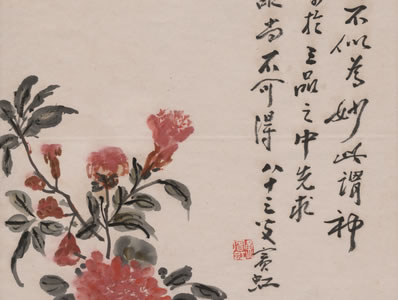 不似為妙此謂神
於三品之中先求
品尚不可得八十三叟賓虹